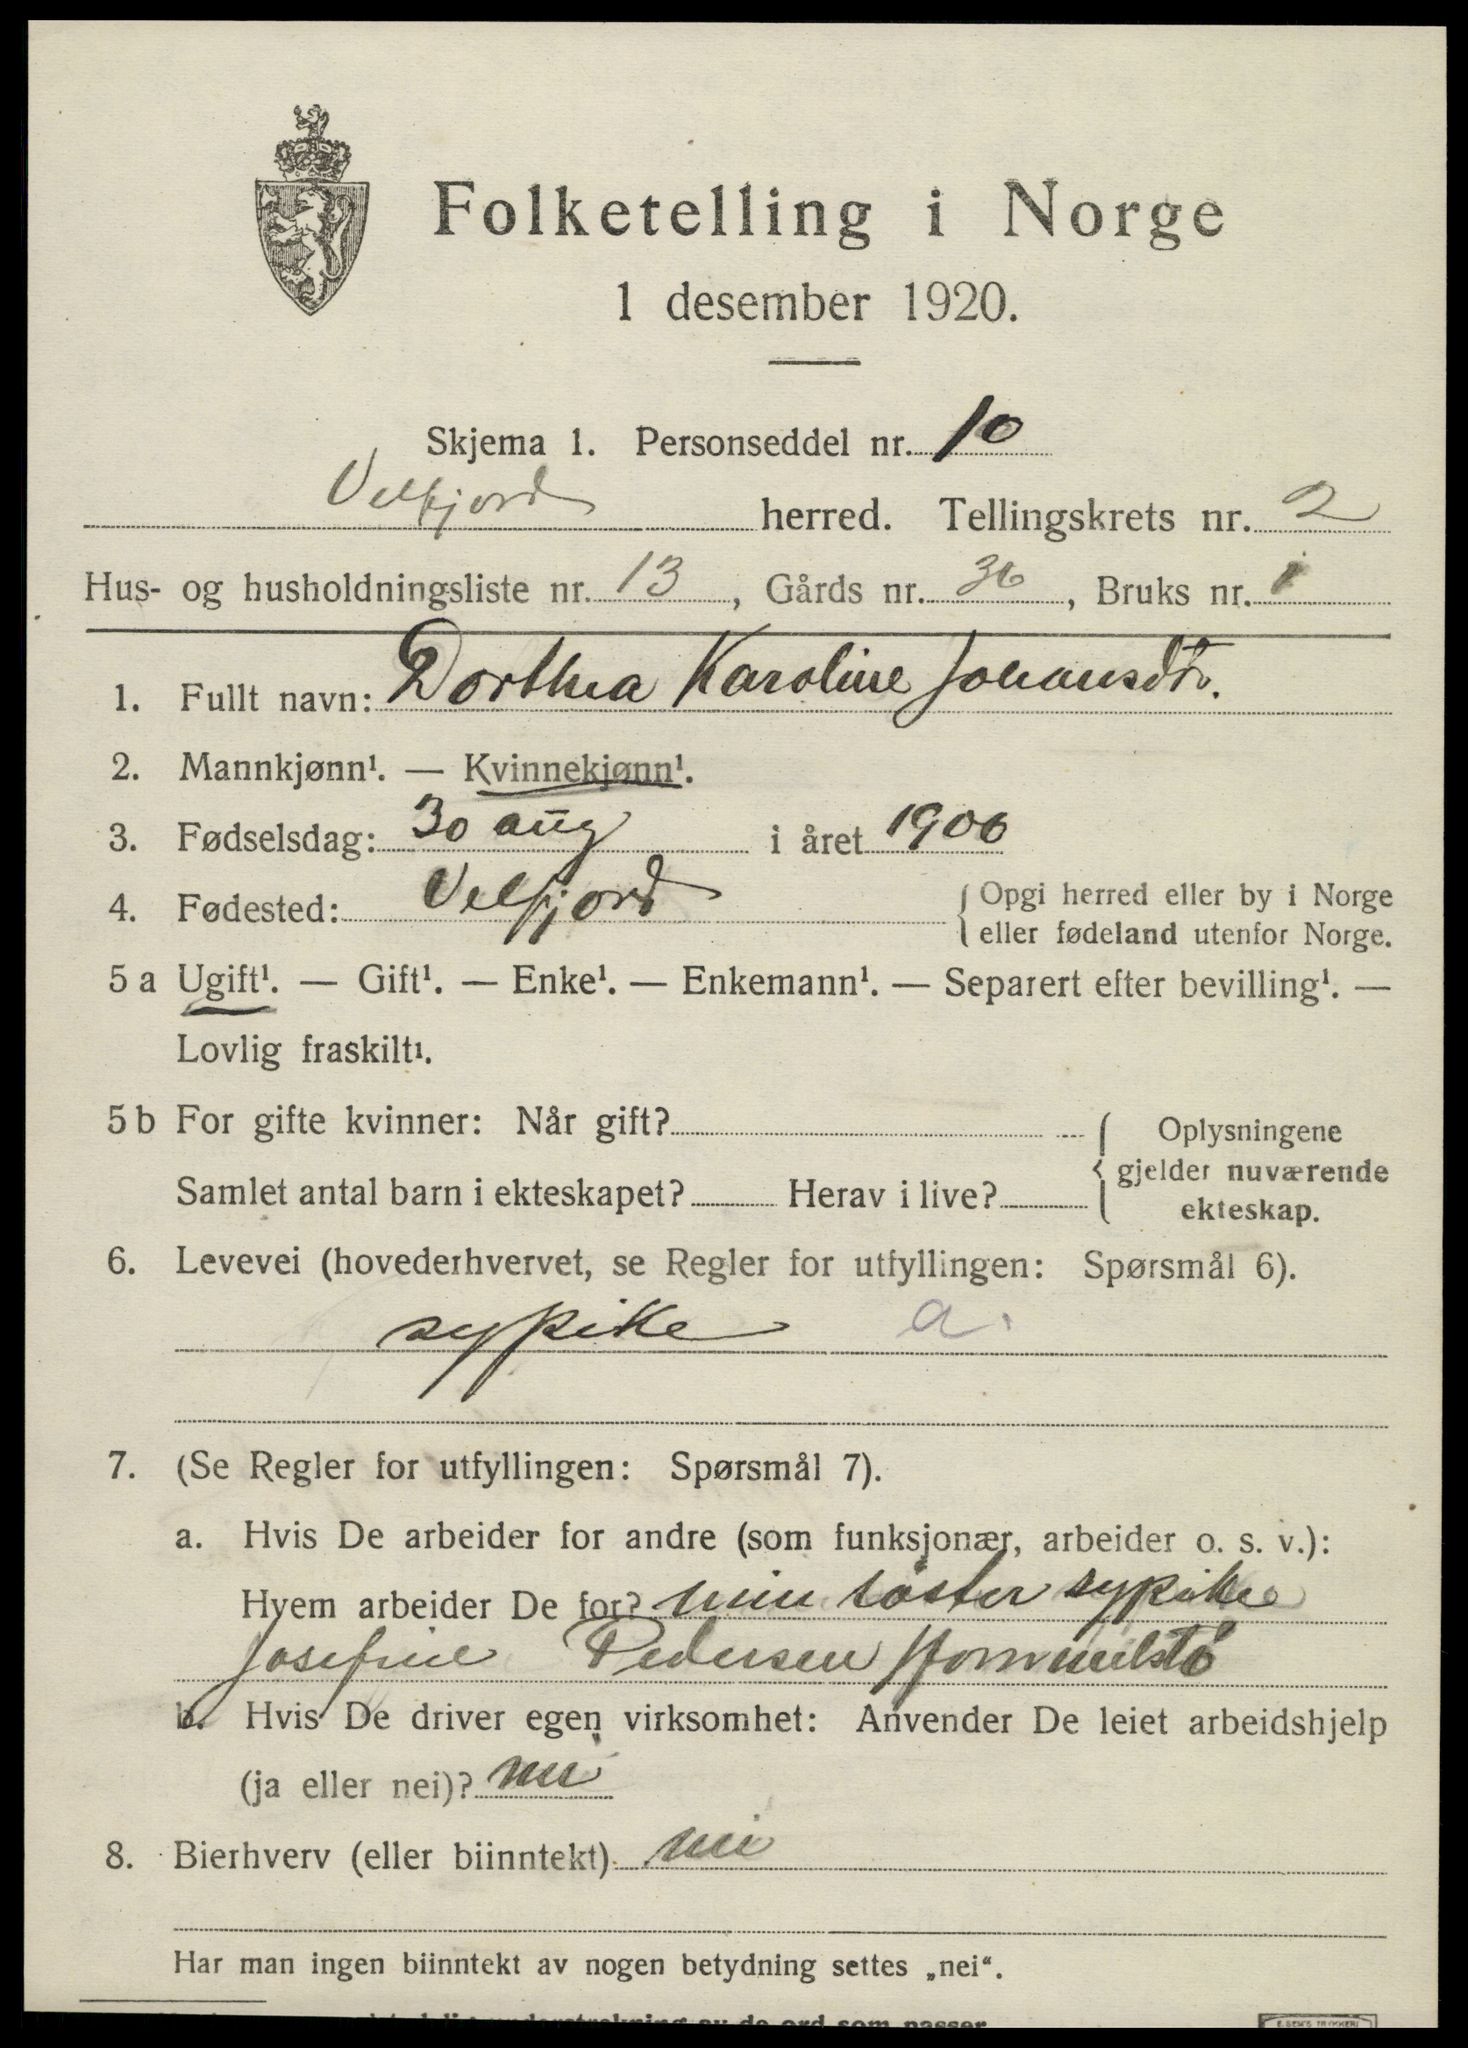 Folketelling i Norge
1 desember 1920.
Skjema 1. Personseddel nr. 10
Velfjord herred. Tellingskrets nr. 2
Hus- og husholdningsliste nr. 13, Gårds nr. 36, Bruks nr. 1
1. Fullt navn: Dorthea Karoline Johansdtr.
2. Mannkjønn¹. — Kvinnekjønn¹.
3. Fødselsdag: 30 aug i året 1906
4. Fødested: Velfjord { Opgi herred eller by i Norge
eller fødeland utenfor Norge.
5 a Ugift¹. — Gift¹. — Enke¹. — Enkemann¹. — Separert efter bevilling¹. —
Lovlig fraskilt¹.
5 b For gifte kvinner: Når gift? { Oplysningene
gjelder nuværende
Samlet antal barn i ekteskapet? Herav i live?
ekteskap.
6. Levevei (hovederhvervet, se Regler for utfyllingen: Spørsmål 6).
sypike a.
7. (Se Regler for utfyllingen: Spørsmål 7).
a. Hvis De arbeider for andre (som funksjonær, arbeider o. s. v.):
Hvem arbeider De for? min søster sypike
Josefine Pedersen Hommelstø
b. Hvis De driver egen virksomhet: Anvender De leiet arbeidshjelp
(ja eller nei)? nei
8. Bierhverv (eller biinntekt) nei
Har man ingen biinntekt av nogen betydning settes „nei“.
av de ord som passer